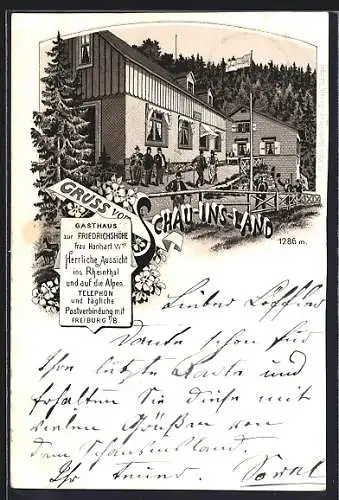 GRUSS VOM
SCHAU-INS-LAND
1286 m.
GASTHAUS
zur FRIEDRICHSHÖHE
frau Hanhart Wwe
Herrliche Aussicht
ins Rheinthal
und auf die Alpen.
TELEPHON
und tägliche
Postverbindung mit
FREIBURG i/B.
Lieber
Danke schon für
Ihre letzte Karte und
erhalten Sie diese mit
vielen Grüßen von
dem Schauinsland.
Ihr Freund.